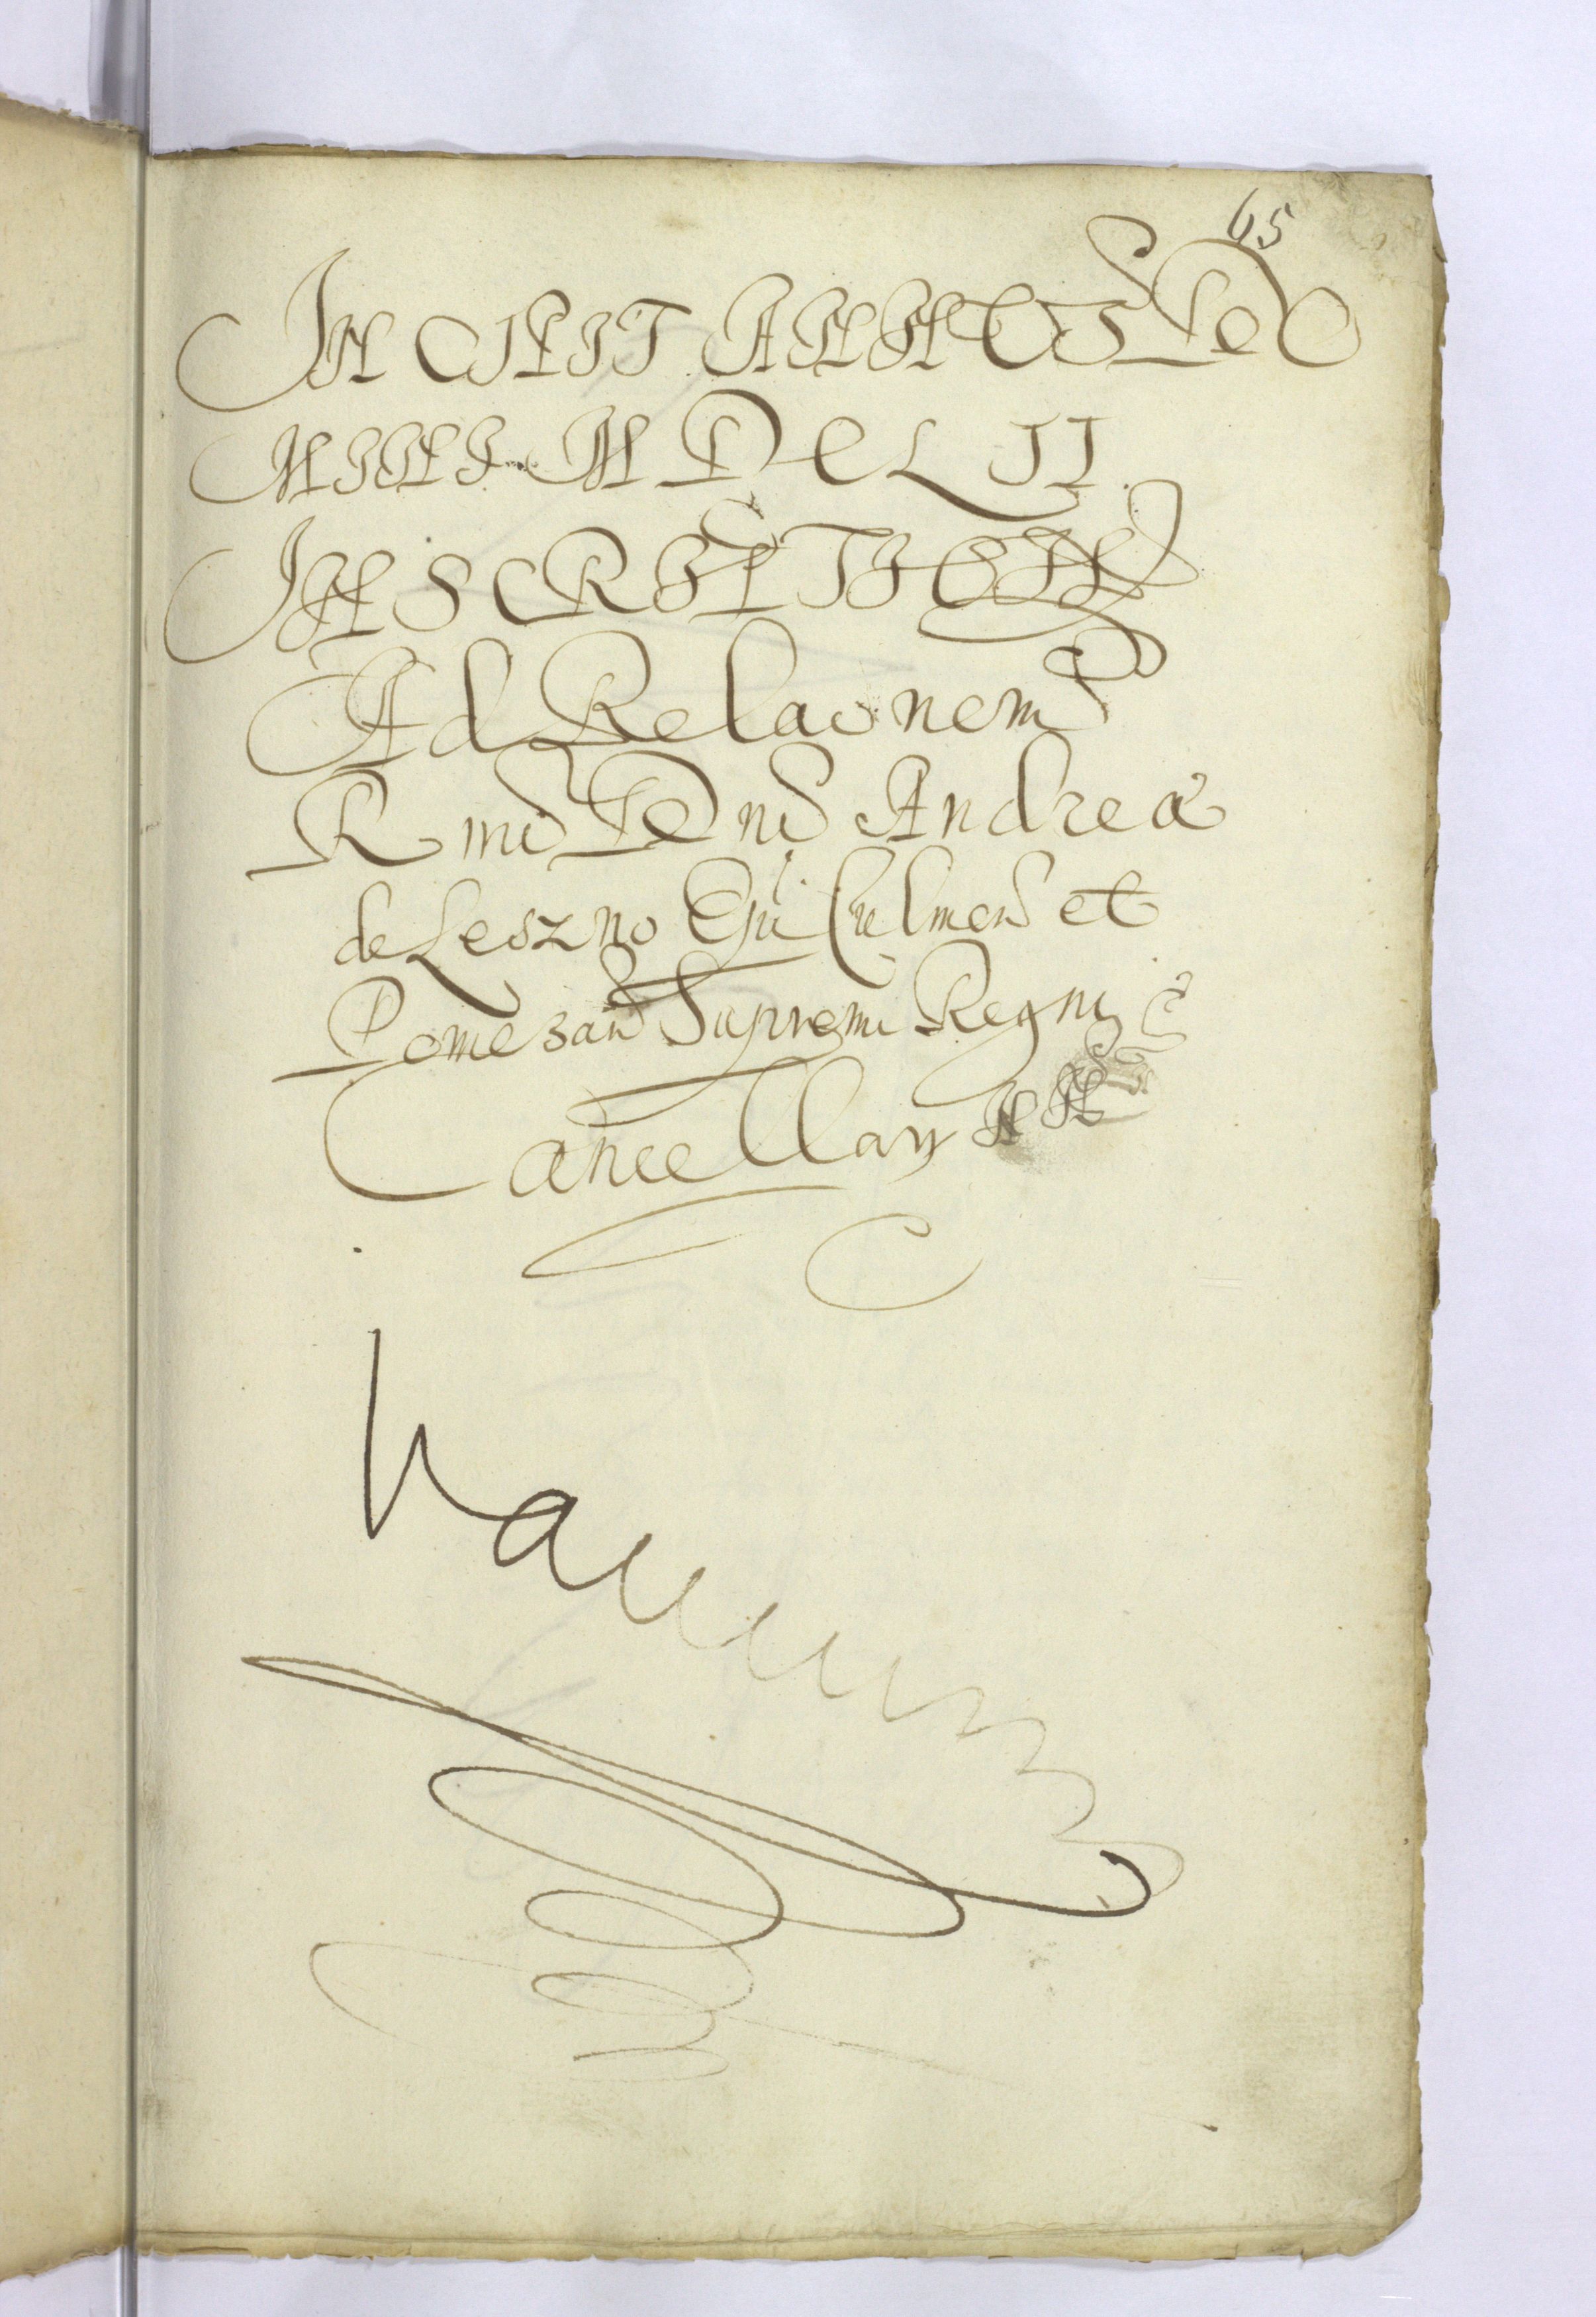 65
INCIPIT ANNUS DO
MINI M DC L II
INSCRIPTION
Ad Relaonem
Rmi Dni Andreæ
de Leszno Epi Culmen et
Pomezan Supremi Regni
Cancellary